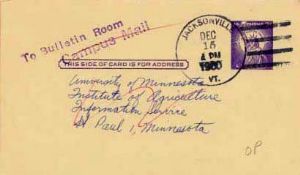 To Bulletin Room
Campus Mail
JACKSONVILLE
DEC
15
4 PM
1960
VT.
THIS SIDE OF CARD IS FOR ADDRESS
University of Minnesota
Institute of Agriculture
Information Service
St Paul 1, Minnesota
OP